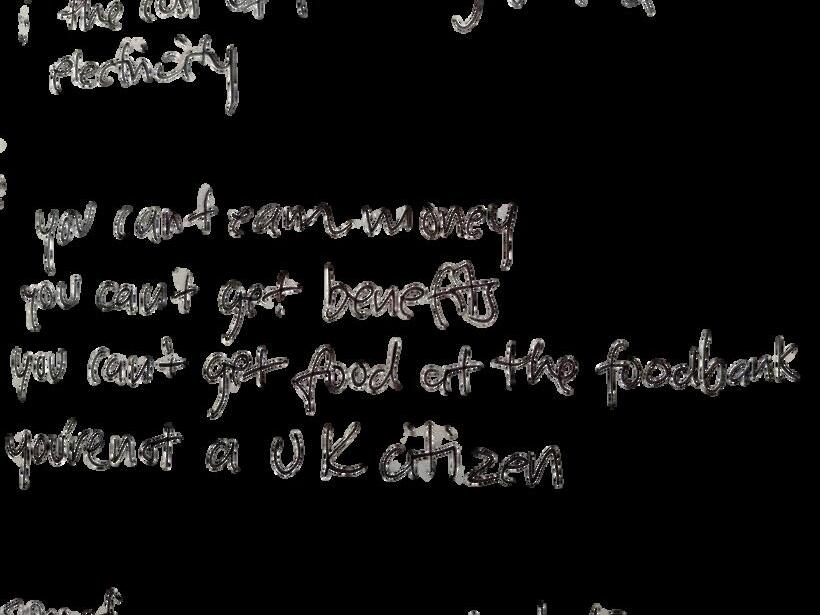 the cost of
electricity
you can't earn money
you can't get benefits
you can't get food at the foodbank
you're not a UK citizen